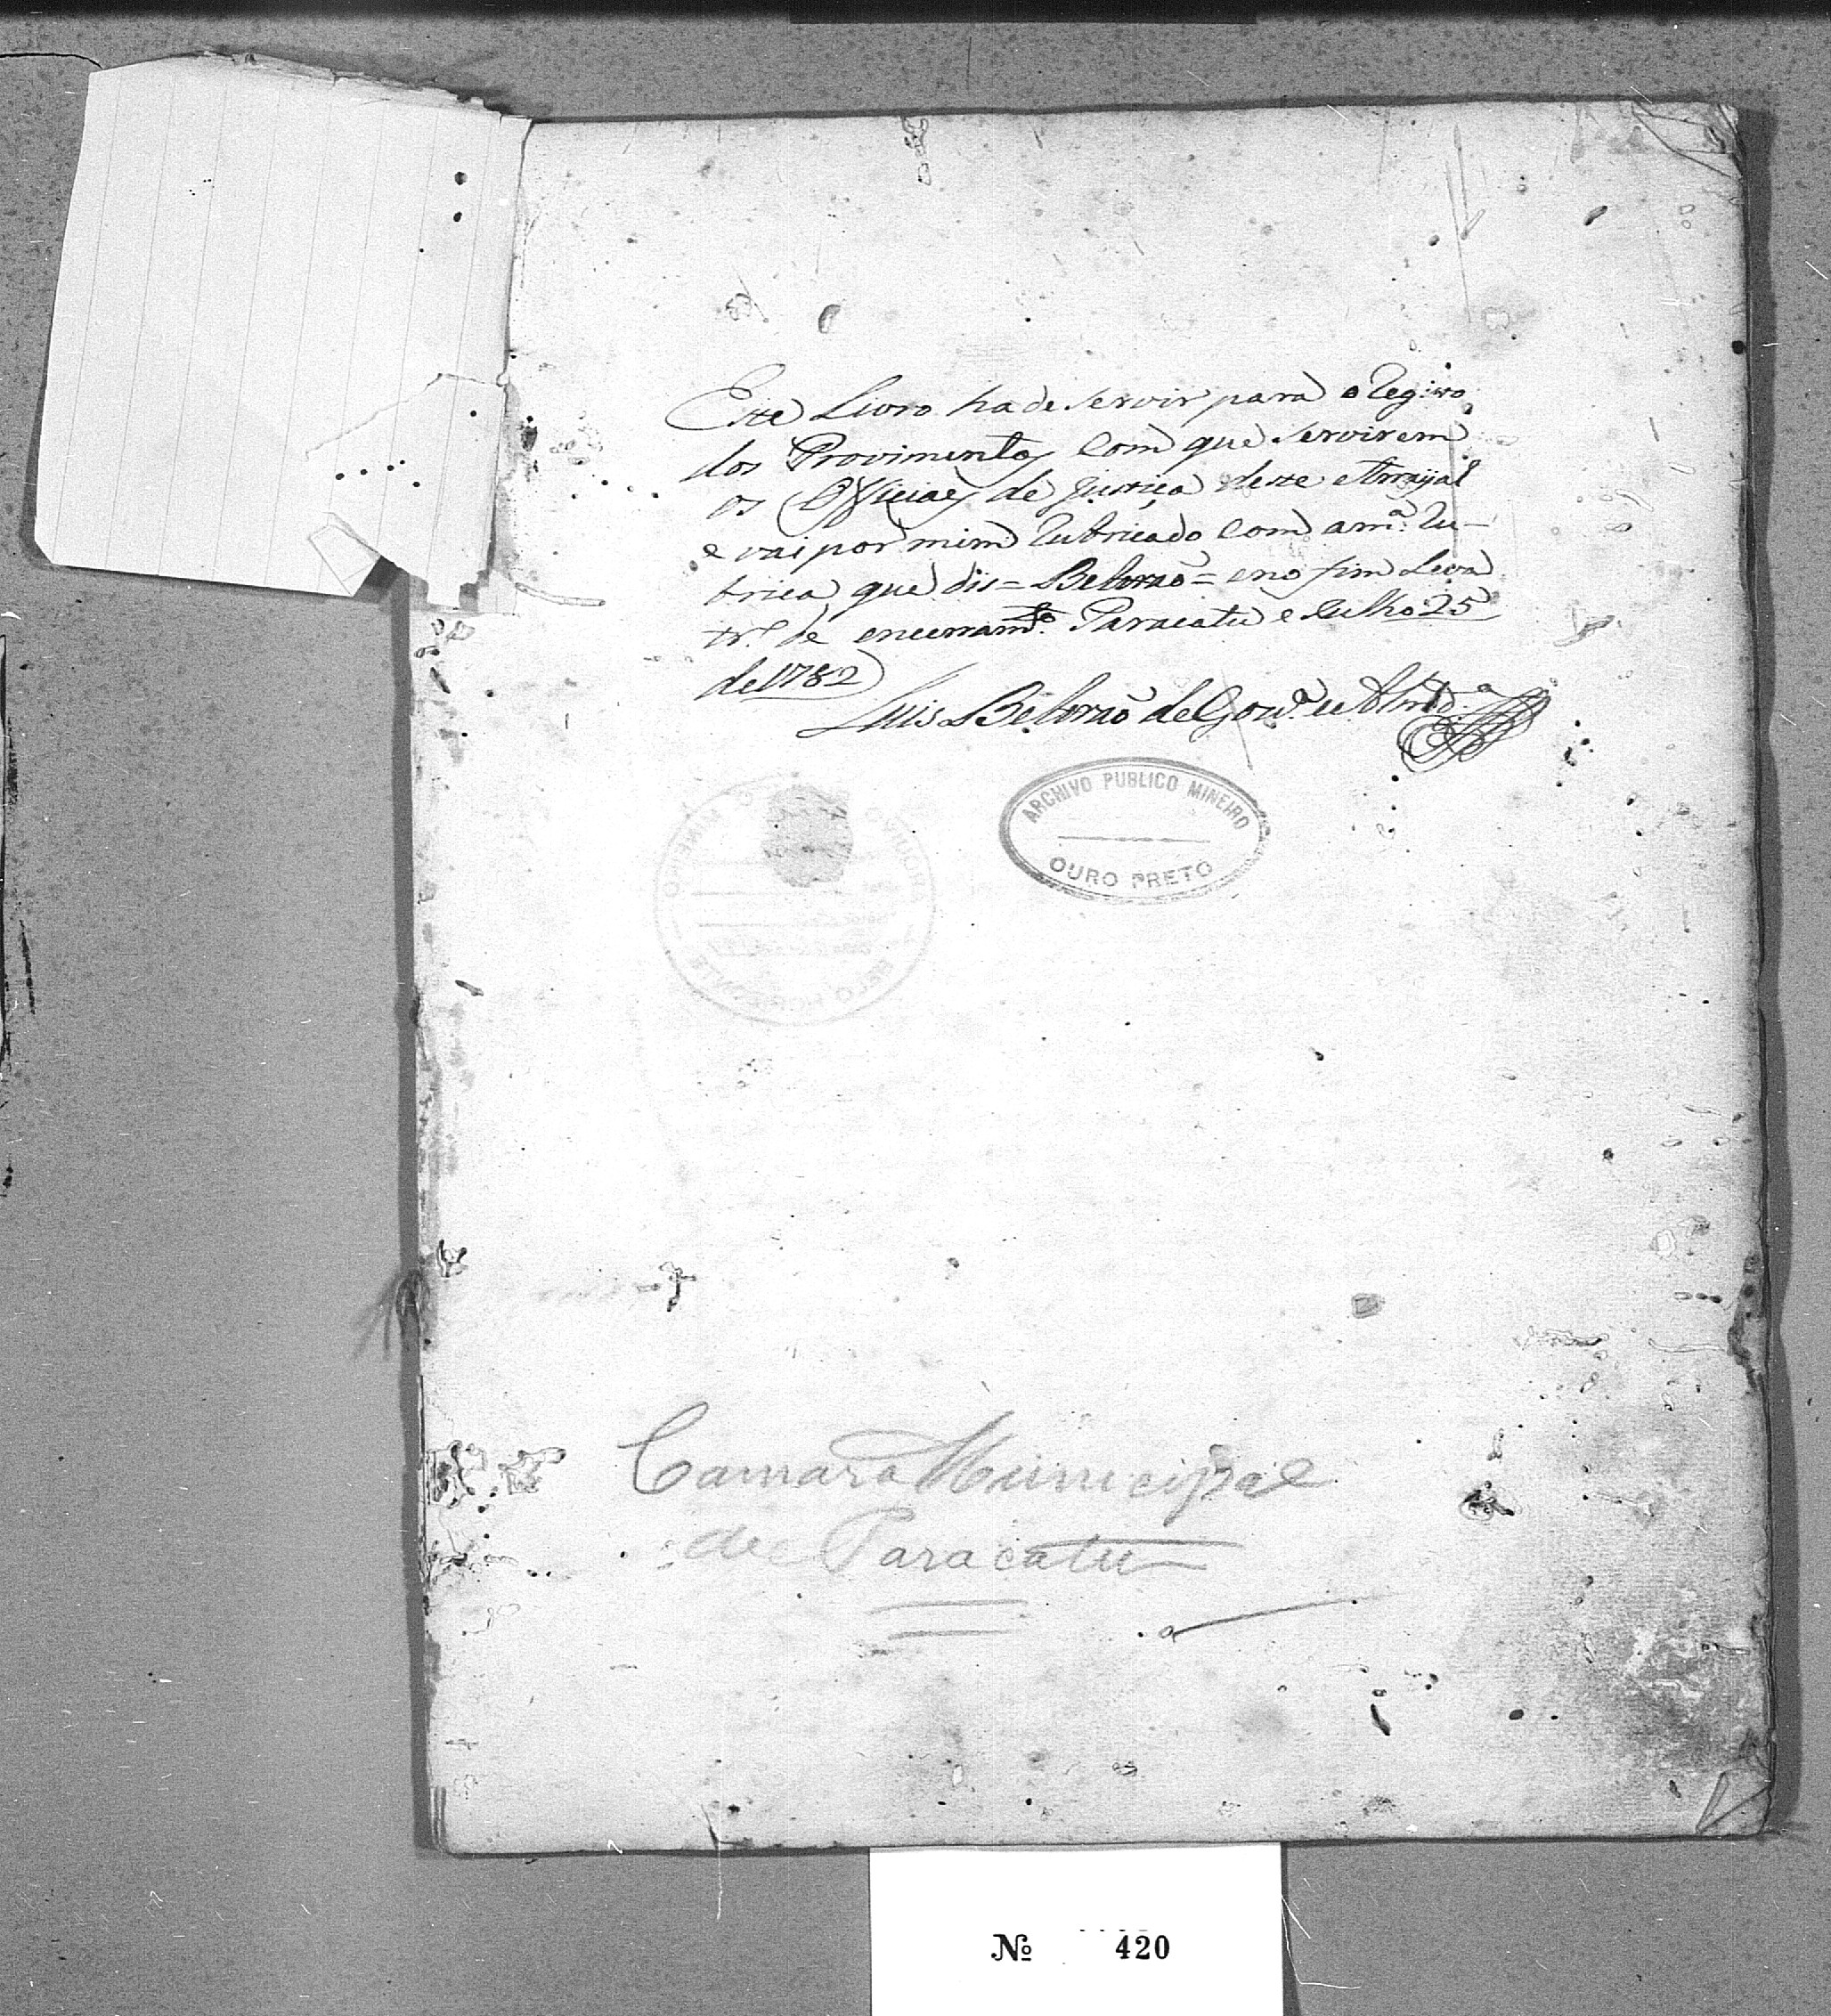 Este Livro ha de servir para o Registo
dos Provimentos com que servirem
os Officiaes de Justiça deste Arrayal
e vai por mim Rubricado com a m.ª Ru-
brica que dis = Beltrão = e no fim Leva
tr.º de encerram.to Paracatu e Julho 25
de 1782
Luis Beltrão de Gouv.ª e Almd.ª
ARCHIVO PUBLICO MINEIRO
OURO PRETO
Camara Municipal
de Paracatu
Nº 420